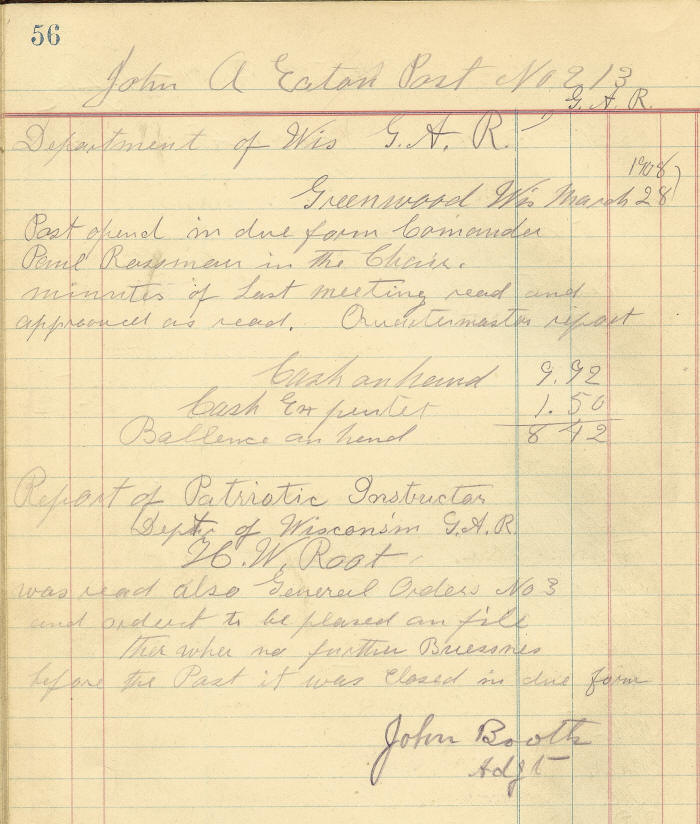 56
John A Eaton Post No 213
G. A. R.
Department of Wis G. A. R.
1908
Greenwood Wis March 28
Post opend in due form Comander
Paul Rossman in the Chair.
minutes of Last meeting read and
approved as read. Quatermaster report
Cash on hand 9.92
Cash Ex 1.50
Ballence on hend 8 42
Report of Patriotic Instructor
Dept of Wisconsin G.A.R.
H. W. Root
was read also General Orders No 3
and orderd to be plased on file
ther wher no further Buessnes
before the Post it was Closed in due form
John Booth
Adjt